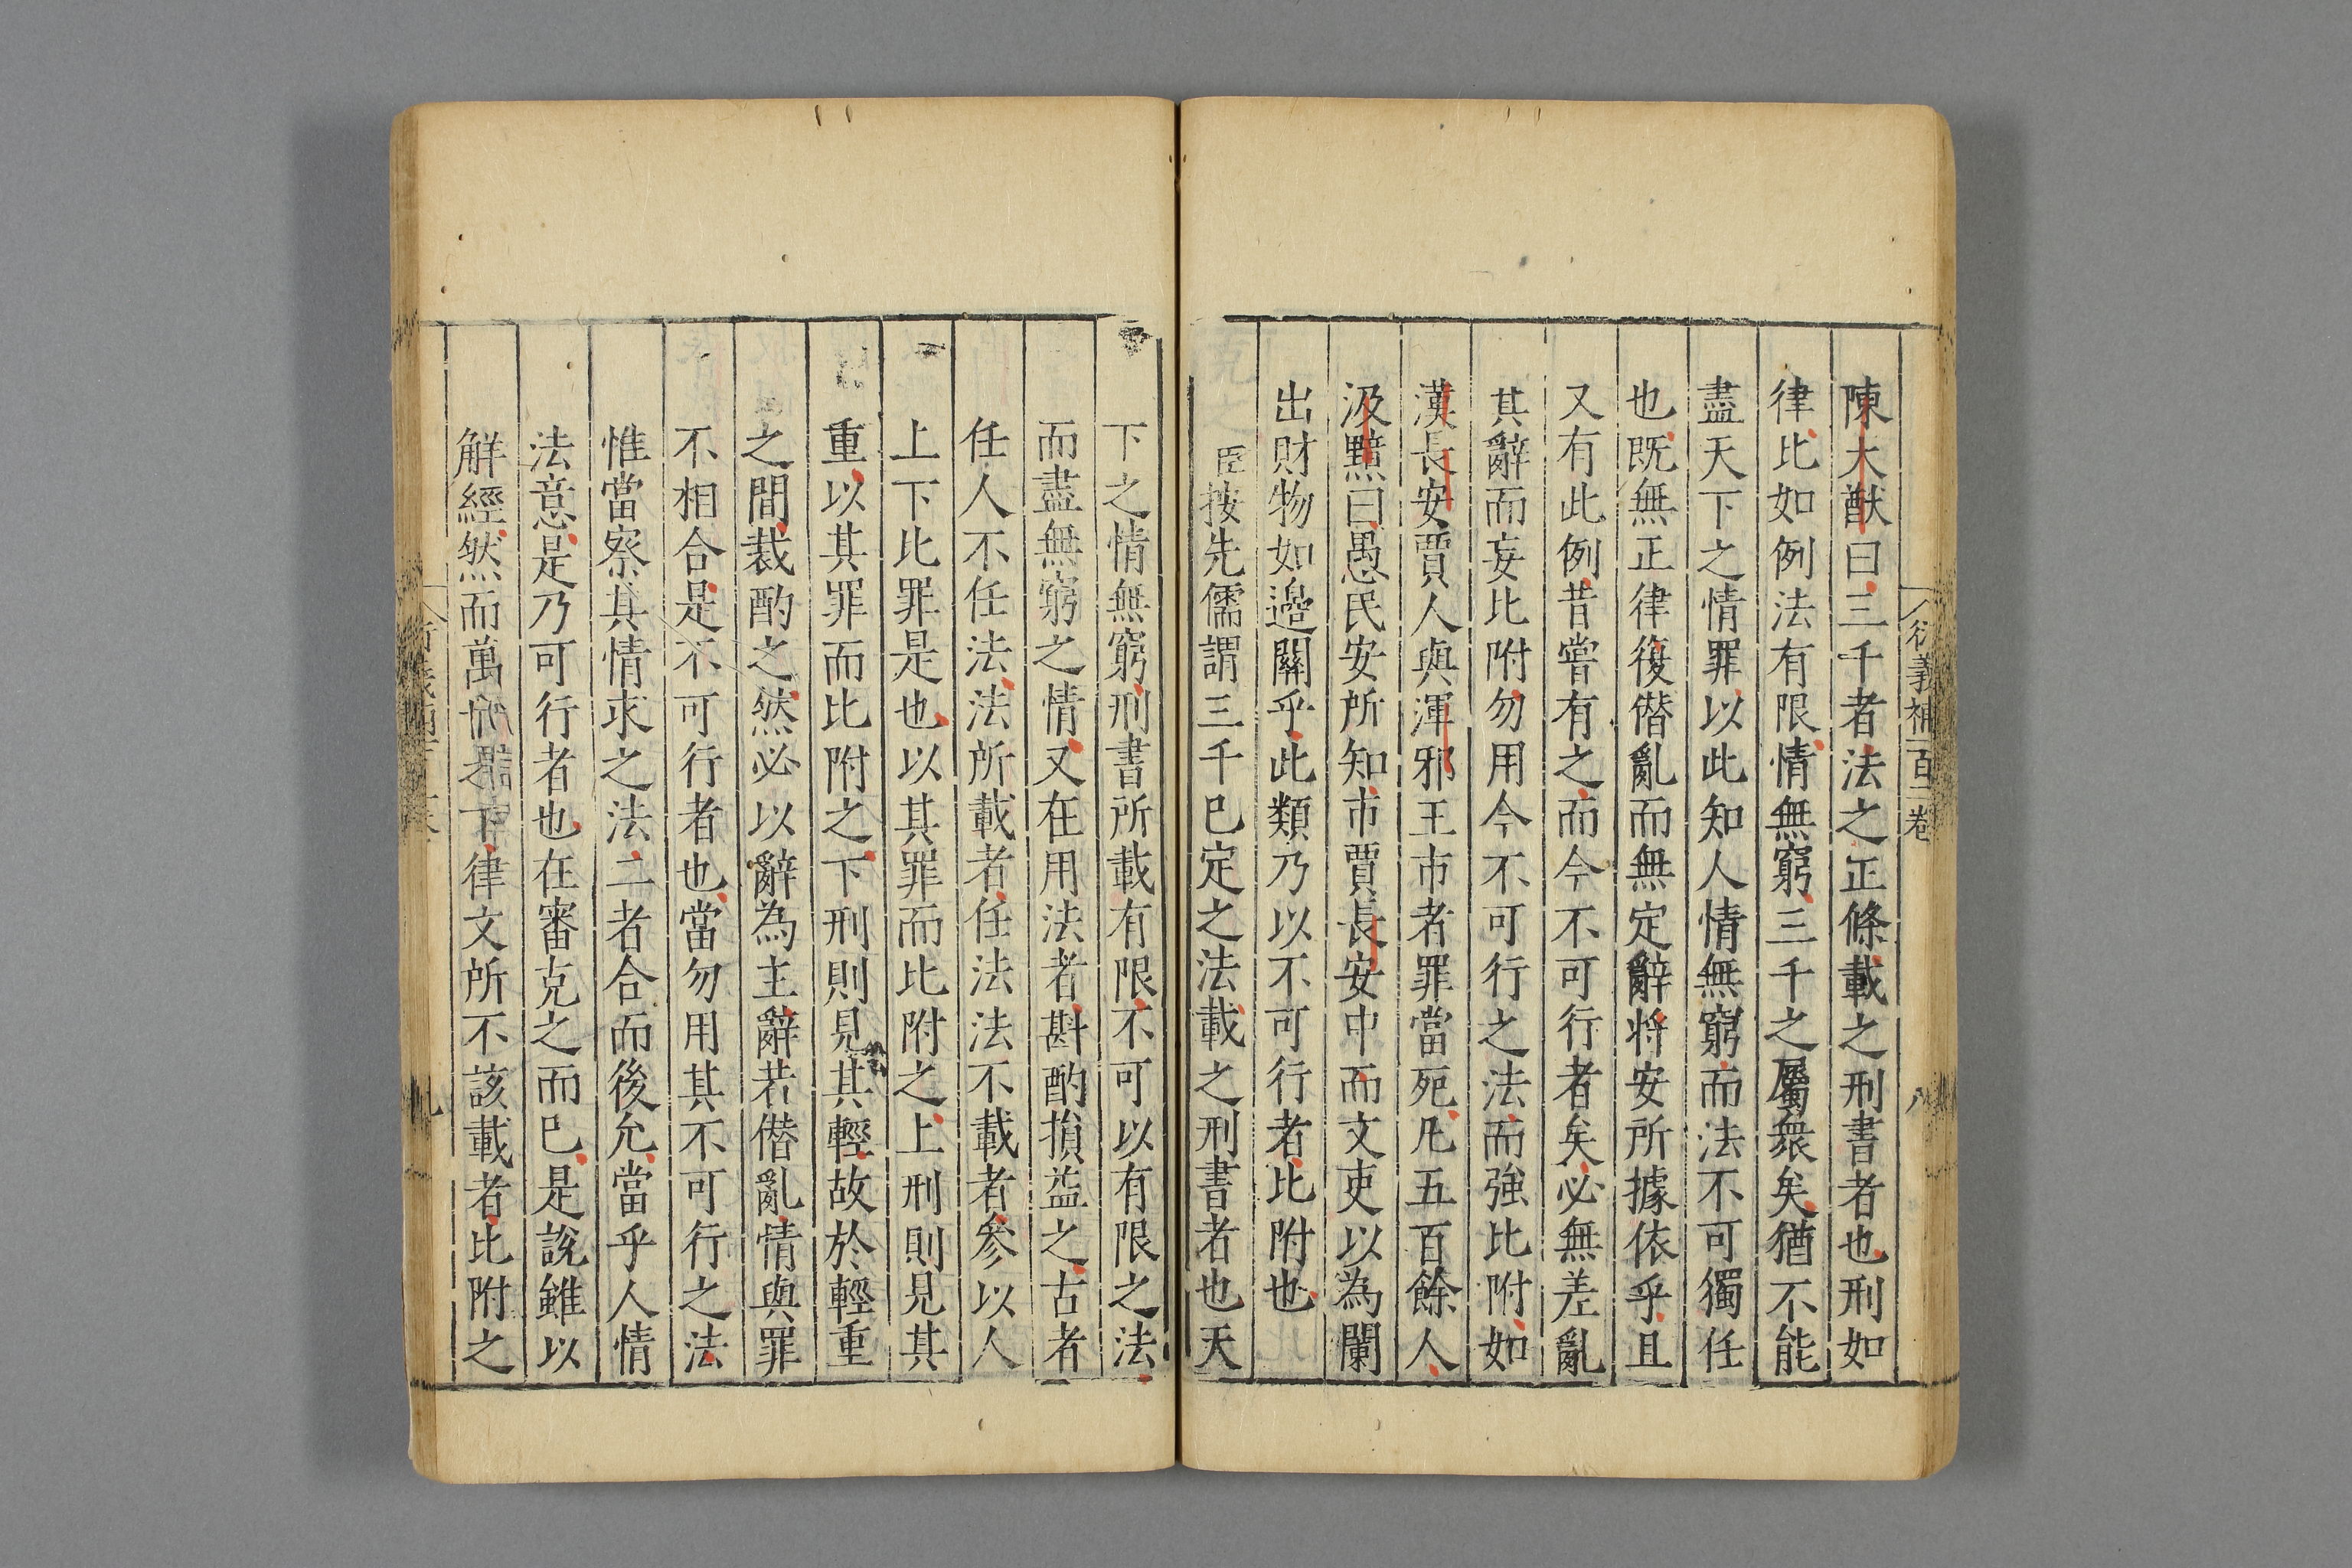 衍義補百二卷
八
陳大猷曰三千者法之正條載之刑書者也刑如
律比如例法有限情無窮三千之屬衆矣猶不能
盡天下之情罪以此知人情無窮而法不可獨任
也既無正律復僭亂而無定辭将安所據依乎且
又有此例昔嘗有之而今不可行者矣必無差亂
其辭而妄比附勿用今不可行之法而強比附如
漢長安賈人與渾邪王市者罪當死凡五百餘人
汲黯曰愚民安所知市賈長安中而文吏以為闌
出財物如邊關乎此類乃以不可行者比附也
臣按先儒謂三千已定之法載之刑書者也天
下之情無窮刑書所載有限不可以有限之法
而盡無窮之情又在用法者斟酌損益之古者
任人不任法法所載者任法法不載者參以人
上下比罪是也以其罪而比附之上刑則見其
重以其罪而比附之下刑則見其輕故於輕重
之間裁酌之然必以辭為主辭若僭亂情與罪
不相合是不可行者也當勿用其不可行之法
惟當察其情求之法二者合而後允當乎人情
法意是乃可行者也在審克之而已是說雖以
解經然而萬下律文所不該載者比附之
九